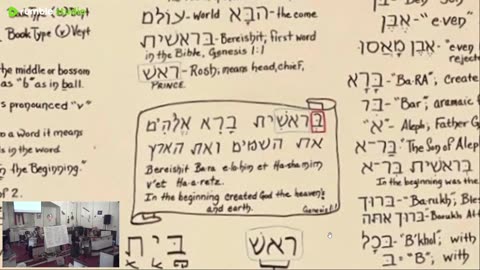 Book Type Ⓥ Vept
the middle or bossom
as "b" as in ball.
s pronounced "v"
to a word it means
s in the word
the Beginning."
of 2.
עוֹלם - world הַבָּא - the come
בְּרֵאשִׁית - Bereishit, First word
in the Bible, Genesis 1:1
רֹאשׁ - Rosh; means head, chief,
PRINCE.
בְּרֵאשִׁית בָּרָא אֱלֹהִים
את השמים ואת הארץ
Bereishit Ba-ra e-lo-hin et Ha-shamim
v'et Ha-a-retz.
In the beginning created God the heaven's
and earth. Genesis 1:1
בַּיִת
רֹאשׁ
אֶבֶן - "even"
אֶבֶן מָאֲסוּ - "even
rejecte
בָּרָא - "Ba-RA"; Create
בַּר - "Bar"; aramaic f
"א" - Aleph; Father G
בַּר-א - The Son of Aleph
בראשית בַּר-א
In the beginning was the
בָּרוּךְ - "Ba-rukh; Bles
בָּרוּךְ אַתָּה - Barukh At
בְּכָל - "B'khol"; with
בְּ = "B"; with